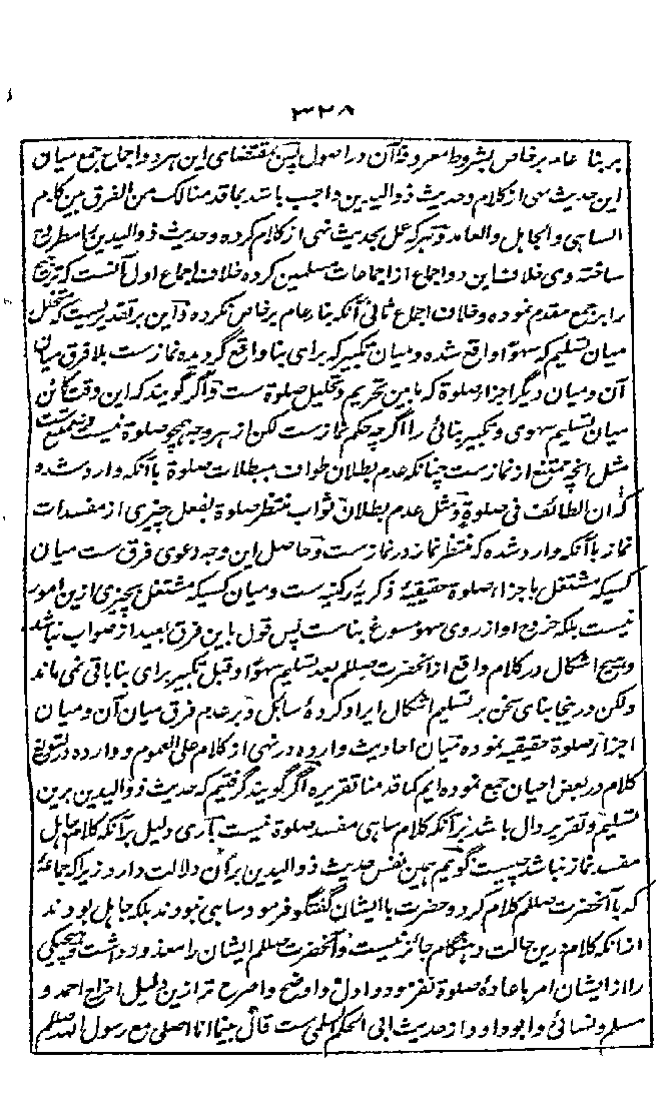 ۳۲۸
بر بنا عام بر خاص بشروط معروفۀ آن در اصول پس مقتضای این هر دو اجماع جمع میان
این حدیث نهی از کلام و حدیث ذو الیدین واجب باشد بما قدمنا لک من الفرق بین کلام
الساهی و الجاهل و العامد و هر که عمل بحدیث نهی از کلام کرده و حدیث ذو الیدین را مطروح
ساخته وی خلاف این دو اجماع از اجماعات مسلمین کرده خلاف اجماع اول آنست که ترجیح
را بر جمع مقدم نموده و خلاف اجماع ثانی آنکه بناء عام بر خاص نکرده و این بر تقدیریست که متخلل
میان تسلیم که سهوا واقع شده و میان تکبیر که برای بنا واقع گردیده نماز ست بلا فرق میان
آن و میان دیگر اجزاء صلوة که ما بین تحریم و تحلیل صلوة ست و اگر گویند که این وقت کائن
میان تسلیم سهوی و تکبیر بنائی را اگرچه حکم نماز ست لکن از هر وجه همچو صلوة نیست و ممتنع نیست
مثل آنچه ممتنع از نماز ست چنانکه عدم بطلان طواف بمبطلات صلوة با آنکه وارد شده
که ان الطائف فی صلوة و مثل عدم بطلان ثواب منتظر صلوة بفعل چیزی از مفسدات
نماز با آنکه وارد شده که منتظر نماز در نماز ست و حاصل این وجه دعوی فرق ست میان
کسیکه مشتغل باجزاء صلوة حقیقیۀ ذکریه رکنیه ست و میان کسیکه مشتغل بچیزی ازین امور
نیست بلکه خروج او از روی سهو مسوغ بنا ست پس قول باین فرق بعید از صواب نباشد
و هیچ اشکال در کلام واقع از آنحضرت صلعم بعد تسلیم سهوا و قبل تکبیر برای بنا باقی نمی ماند
ولکن در ینجا بنای سخن بر تسلیم اشکال ایراد کردۀ سائل و بر عدم فرق میان آن و میان
اجزاء صلوة حقیقیه نموده میان احادیث وارده در نهی از کلام علی العموم و وارده در تسویغ
کلام در بعض احیان جمع نموده ایم کما قدمنا تقریره اگر گویند گرفتیم که حدیث ذو الیدین برین
تسلیم و تقریر دال باشد بر آنکه کلام ساهی مفسد صلوة نیست باری دلیل بر آنکه کلام جاهل
مفسد نماز نباشد چیست گوئیم همین نفس حدیث ذو الیدین بر آن دلالت دارد زیرا که جماعۀ
که با آنحضرت صلعم کلام کرد و حضرت با ایشان گفتگو فرمود ساهی نبودند بلکه جاهل بودند
از آنکه کلام درین حالت و هنگام جائز نیست و آنحضرت صلعم ایشان را معذور داشت و هیچ یکی
را از ایشان امر باعادۀ صلوة نفرمود و ادل و اوضح و اصرح تر ازین دلیل اخراج احمد و
مسلم و نسائی و ابو داود از حدیث ابی الحکم السلمی ست قال بینما انا اصلی مع رسول الله صلعم